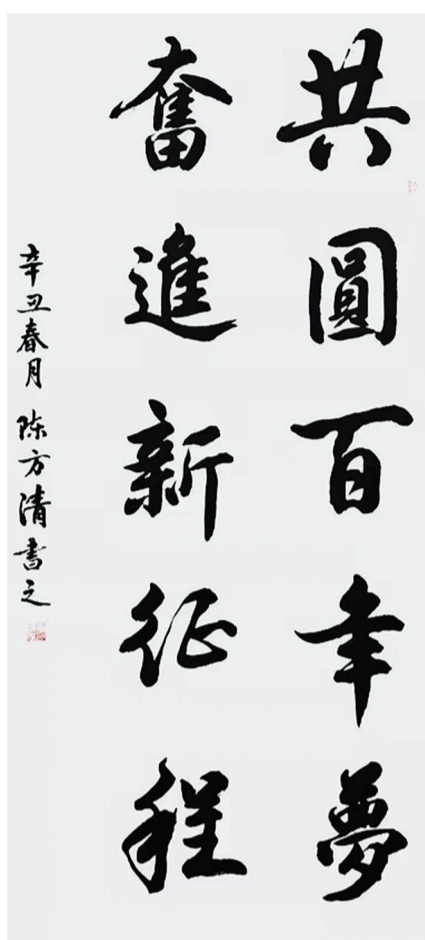 共圓百年夢
奮進新征程
辛丑春月 陈方清書之